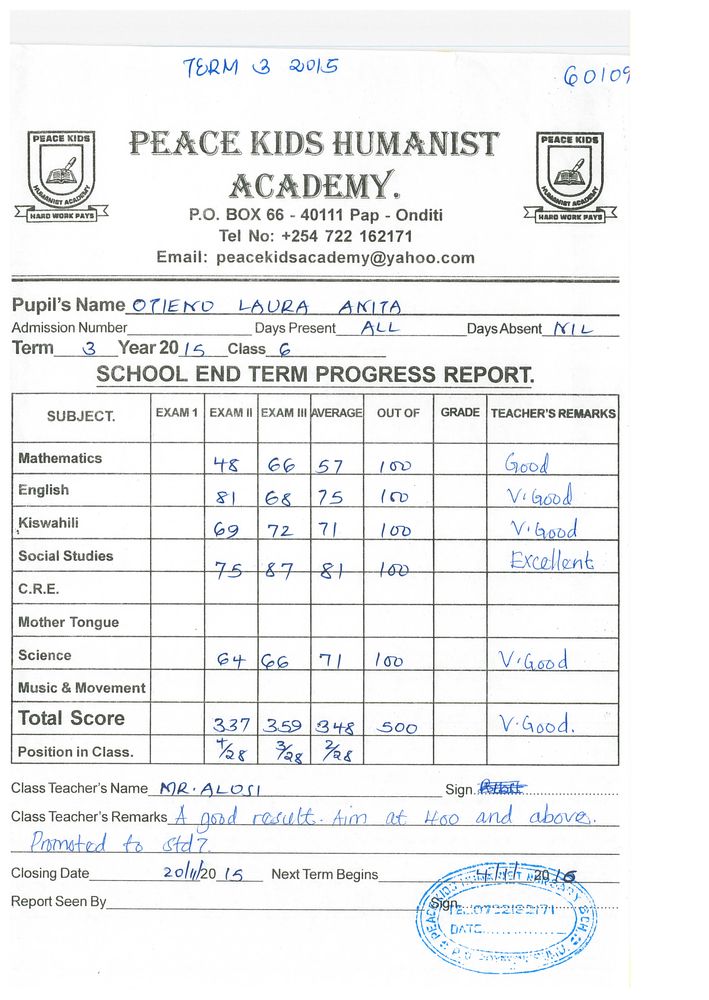 TERM 3 2015
60109
PEACE KIDS
HUMANIST ACADEMY
HARD WORK PAYS
PEACE KIDS HUMANIST
ACADEMY.
PEACE KIDS
HUMANIST ACADEMY
HARD WORK PAYS
P.O. BOX 66 - 40111 Pap - Onditi
Tel No: +254 722 162171
Email: peacekidsacademy@yahoo.com
Pupil's Name OTIENO LAURA ANITA
Admission Number Days Present ALL Days Absent NIL
Term 3 Year 2015 Class 6
SCHOOL END TERM PROGRESS REPORT.
SUBJECT. EXAM 1 EXAM II EXAM III AVERAGE OUT OF GRADE TEACHER'S REMARKS
Mathematics 48 66 57 100 Good
English 81 68 75 100 V.Good
Kiswahili 69 72 71 100 V.Good
Social Studies 75 87 81 100 Excellent
C.R.E.
Mother Tongue
Science 64 66 71 100 V.Good
Music & Movement
Total Score 337 359 348 500 V.Good.
Position in Class. 4/28 3/28 2/28
Class Teacher's Name MR. ALOSI Sign.
Class Teacher's Remarks A good result. Aim at 400 and above.
Promoted to std7.
Closing Date 20/11/2015 Next Term Begins 4/1/2016
Report Seen By Sign.
DATE